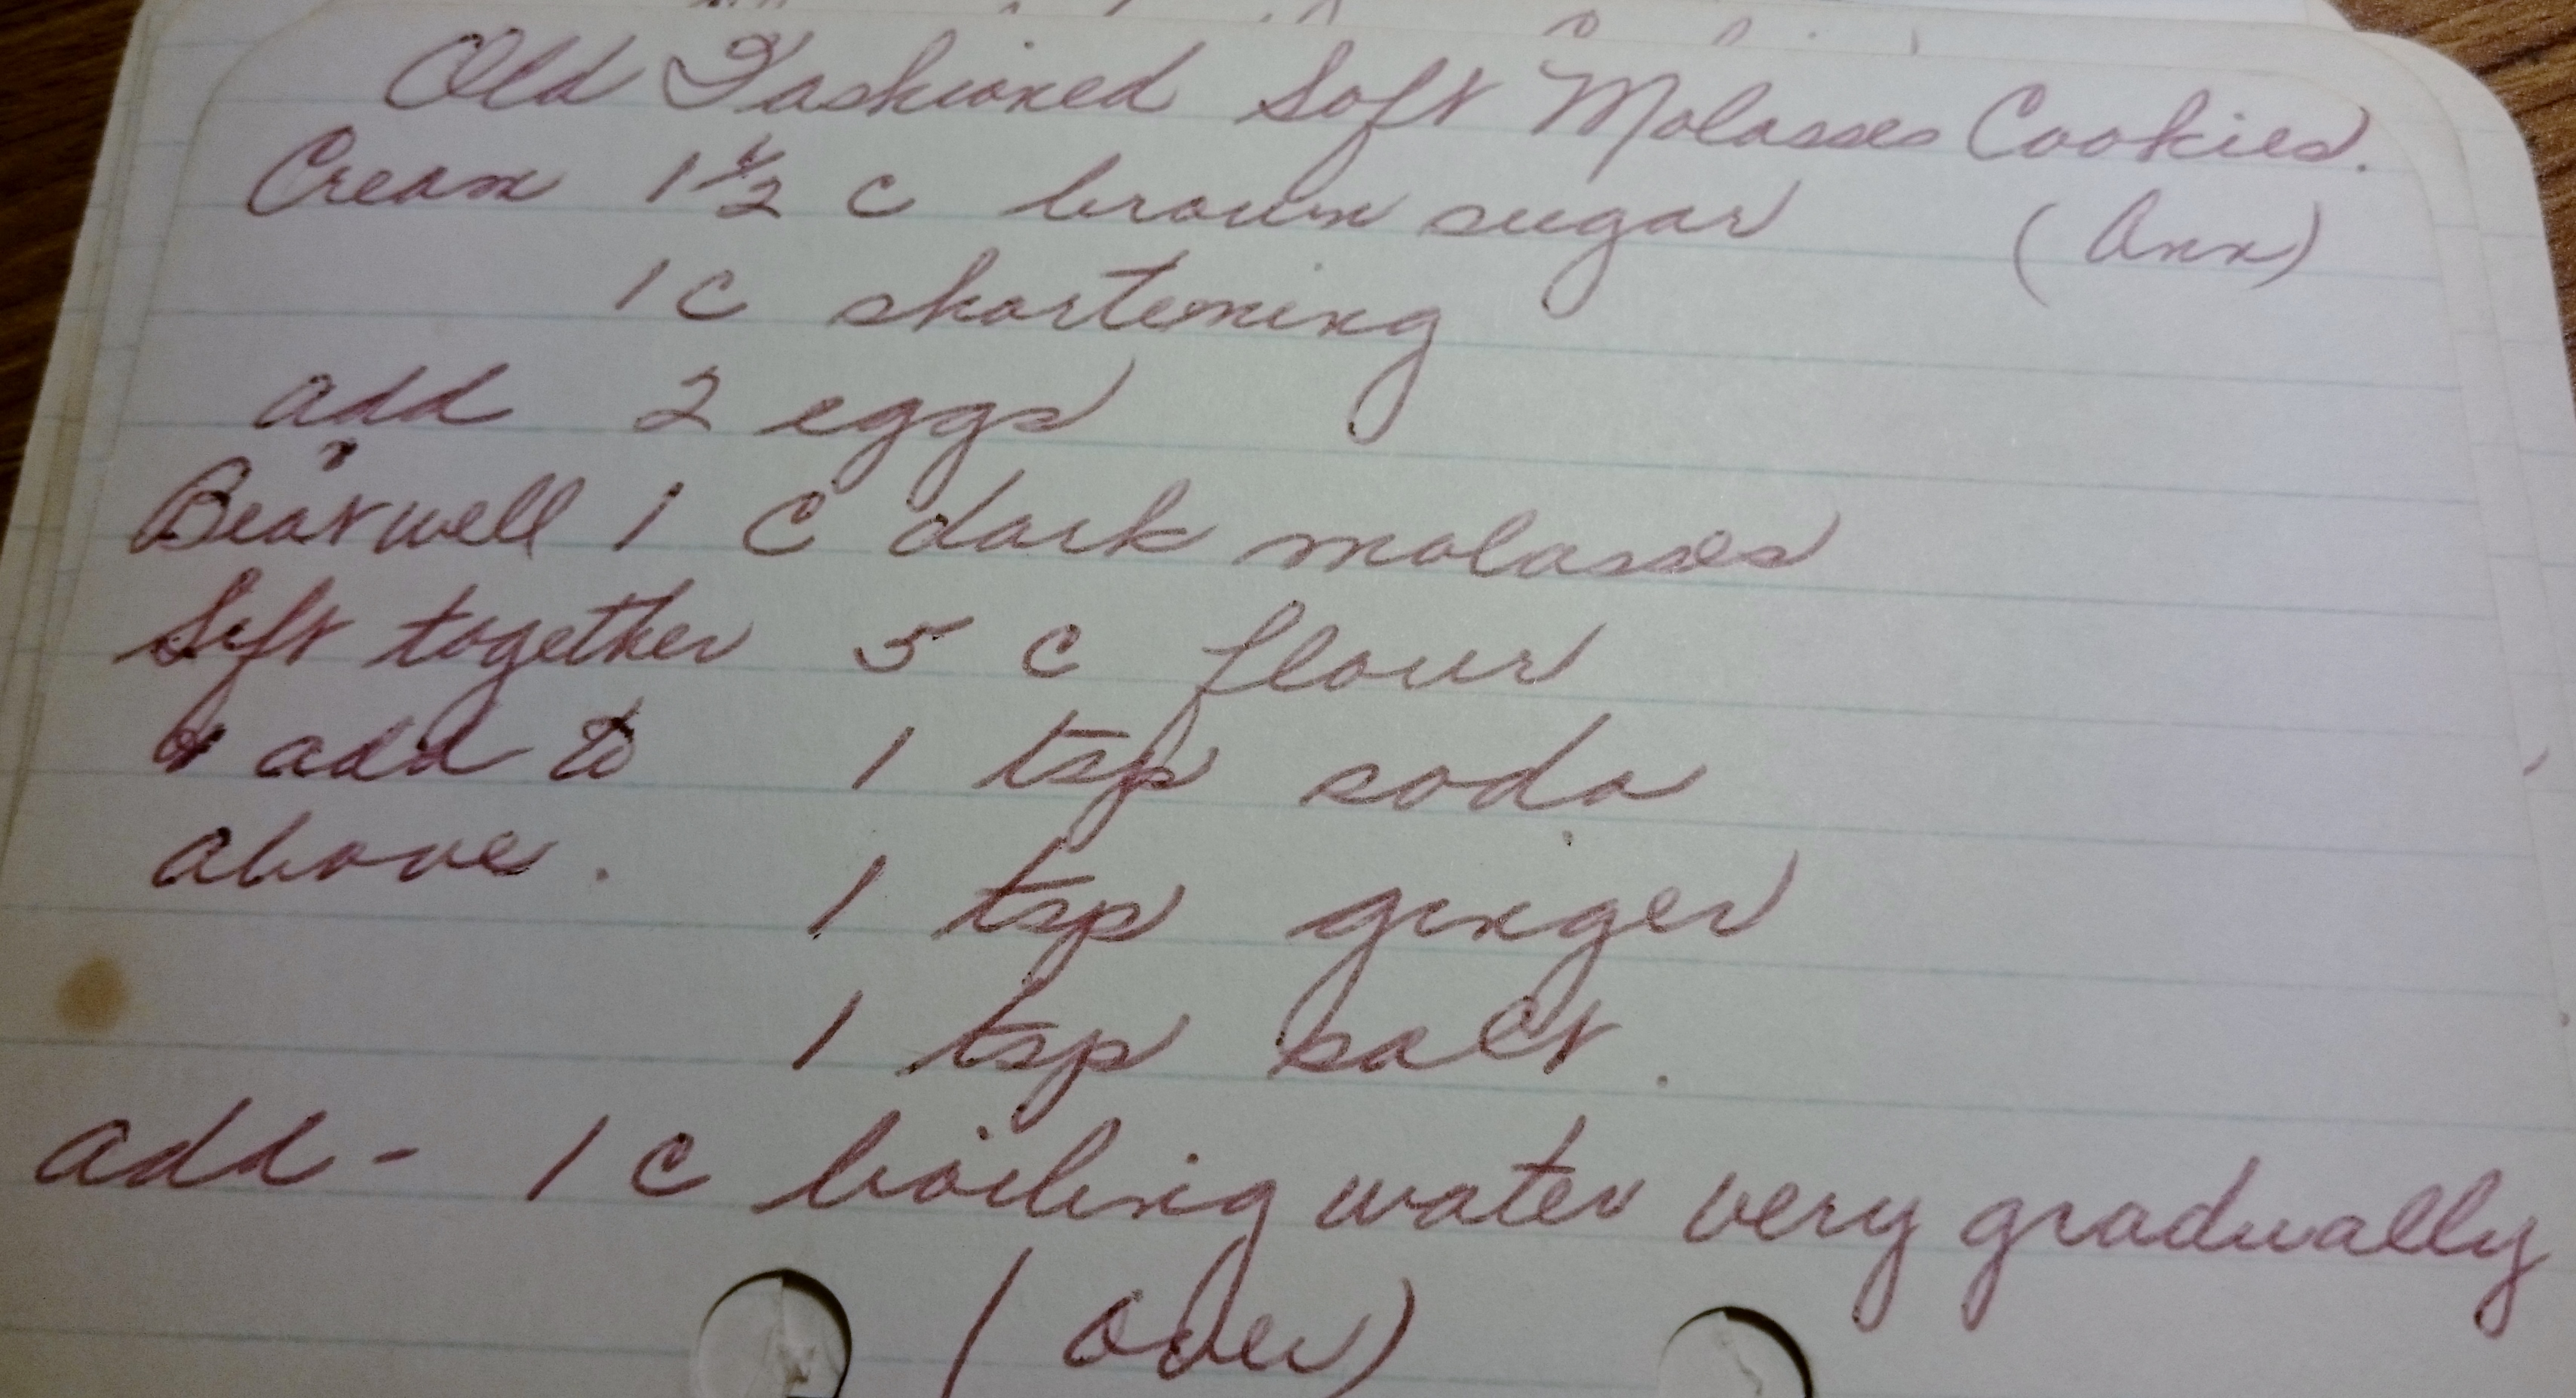 Old Fashioned Soft Molasses Cookies.
Cream 1 1/2 c brown sugar (Ann)
1 c shortening
add 2 eggs
Beat well 1 C dark molasses
Sift together 5 c flour
& add to 1 tsp soda
above. 1 tsp ginger
1 tsp salt.
add - 1 c boiling water very gradually
(over)